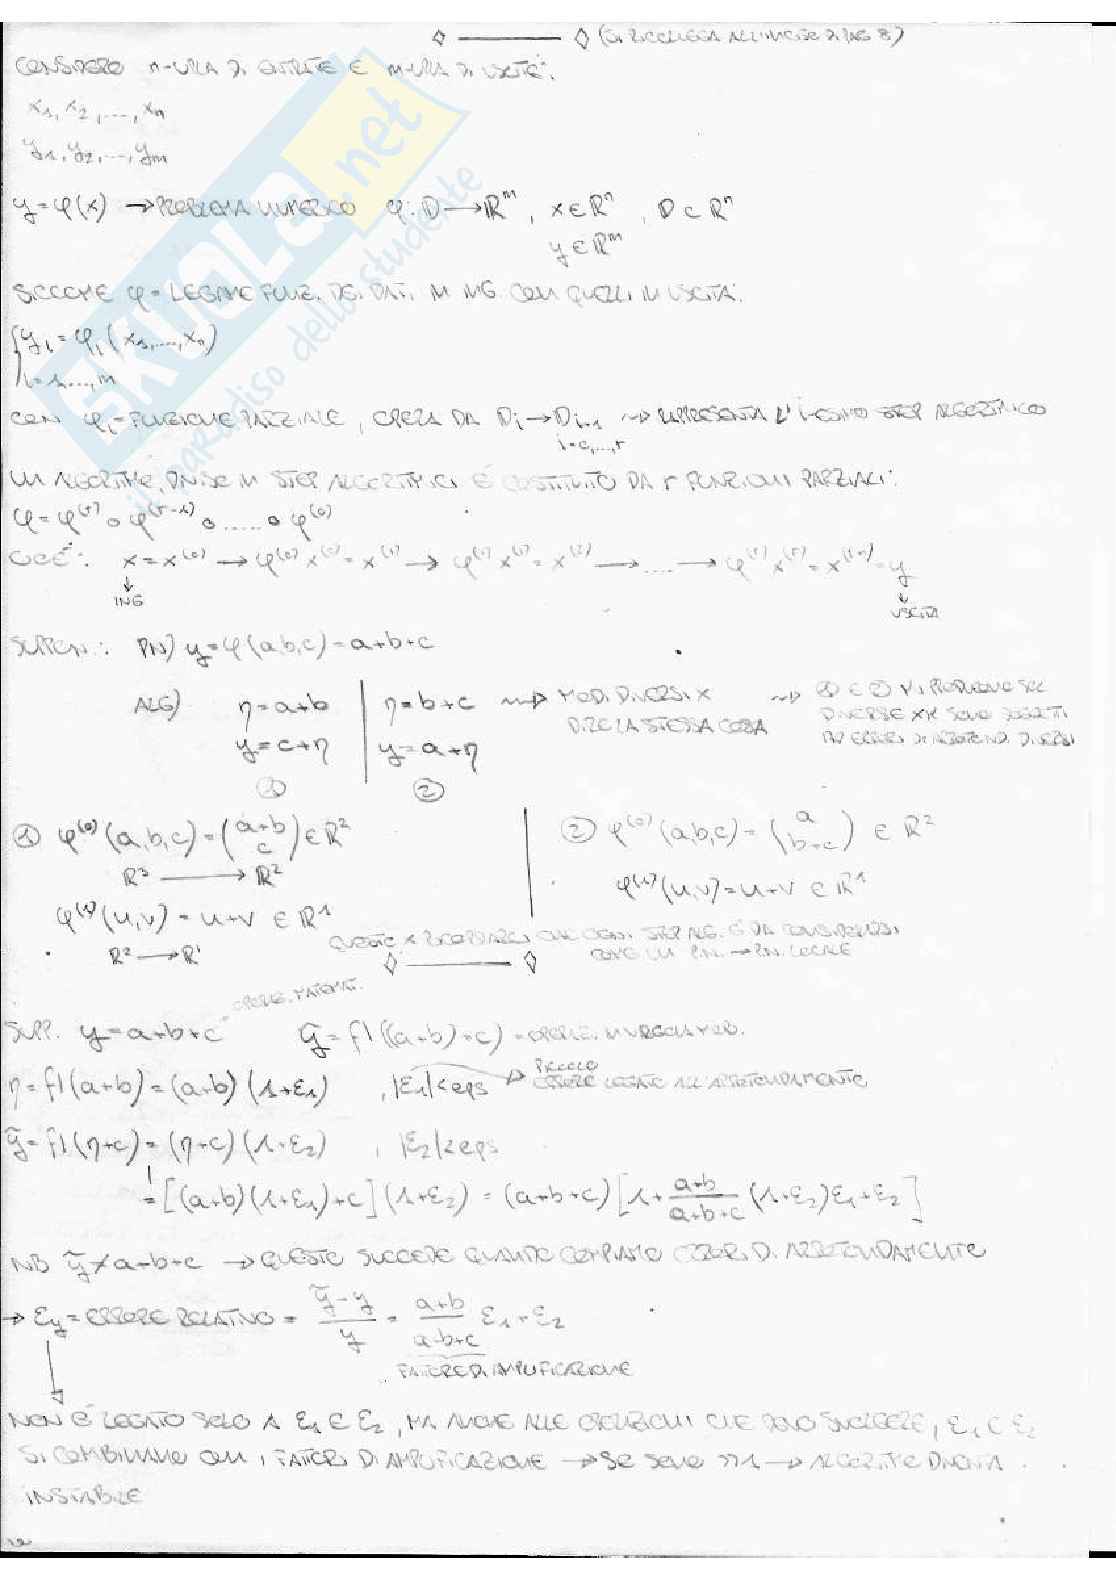 (SI RICOLLEGA ALL'INIZIO DI PAG 8)
CONSIDERO n-UPLA DI ENTRATE E m-UPLA DI USCITE:
x1, x2, ..., xn
y1, y2, ..., ym
y=φ(x) → PROBLEMA NUMERICO φ: D → ℝ^m, x∈ℝ^n, D⊂ℝ^n
y∈ℝ^m
SICCOME φ = LEGAME FUNZ. DEI DATI IN ING. CON QUELLI IN USCITA:
{ yi = φi (x1, ..., xn)
i=1, ..., m
CON φi = FUNZIONE PARZIALE, OPERA DA Di → Di+1 ⇝ RAPPRESENTA L'i-ESIMO STEP ALGORITMICO
i=0, ..., r
UN ALGORITMO, DIVISO IN STEP ALGORITMICI È COSTITUITO DA r FUNZIONI PARZIALI:
φ = φ^(r) ∘ φ^(r-1) ∘ ..... ∘ φ^(0)
CIOÈ: x = x^(0) → φ^(0) x^(0) = x^(1) → φ^(1) x^(1) = x^(2) → .... → φ^(r) x^(r) = x^(r+1) = y
↓ ING
↓ USCITA
SUPPON.: PN) y=φ(a,b,c)=a+b+c
ALG) η=a+b | η=b+c ⇝ MODI DIVERSI X ⇝ ① E ② MI PRODUCONO SOL
y=c+η | y=a+η DIRE LA STESSA COSA DIVERSE XK SONO SOGGETTI
① ② AD ERRORI DI ARROTOND. DIVERSI
① φ^(0)(a,b,c) = (a+b c) ∈ℝ^2 | ② φ^(0)(a,b,c) = (a b+c) ∈ ℝ^2
ℝ^3 → ℝ^2
φ^(1)(u,v) = u+v ∈ ℝ^1 | φ^(1)(u,v) = u+v ∈ ℝ^1
ℝ^2 → ℝ^1
QUESTO X RICORDARCI CHE OGNI STEP ALG. È DA CONSIDERARSI
COME UN P.N. → P.N. LOCALE
OPERAZ. MATEMAT.
SUPP. y=a+b+c ỹ = fl((a+b)+c) = OPERAZ. IN VIRGOLA MOB.
η = fl(a+b) = (a+b)(1+ε1) , |ε1|<eps → PICCOLO
ERRORE LEGATO ALL'ARROTONDAMENTO
ỹ = fl(η+c) = (η+c)(1+ε2) , |ε2|<eps
= [(a+b)(1+ε1)+c](1+ε2) = (a+b+c)[1+ a+b/a+b+c (1+ε2)ε1+ε2]
NB ỹ≠a+b+c → QUESTO SUCCEDE QUANDO COMPIAMO ERRORI DI ARROTONDAMENTO
→ εy = ERRORE RELATIVO = ỹ-y/y = a+b/a+b+c ε1+ε2
FATTORE DI AMPLIFICAZIONE
NON È LEGATO SOLO A ε1 E ε2, MA ANCHE ALLE OPERAZIONI CHE DEVO SVOLGERE, ε1 E ε2
SI COMBINANO CON I FATTORI DI AMPLIFICAZIONE → SE SONO >>1 → ALGORITMO DIVENTA
INSTABILE
SKUOLA.net
il paradiso dello studente